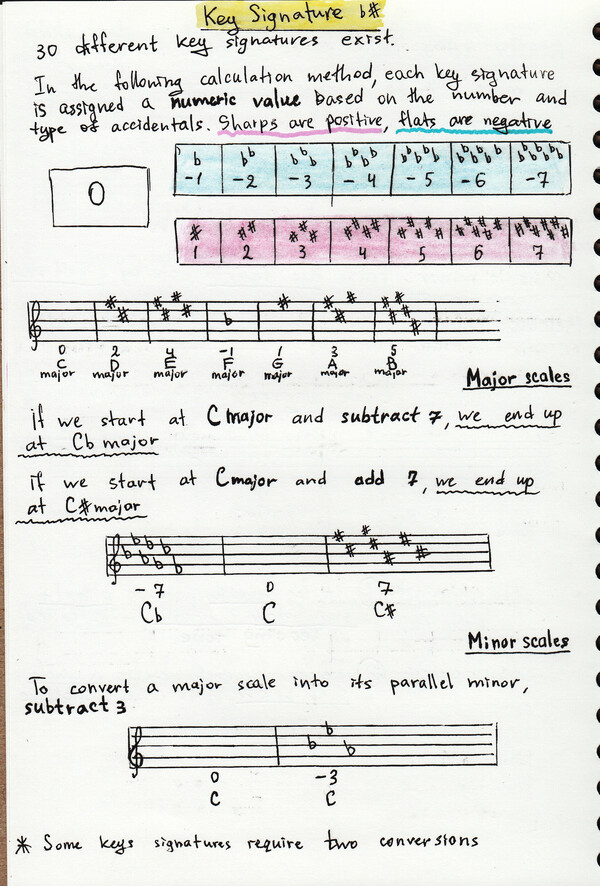 Key Signature ♭#
30 different key signatures exist.
In the following calculation method, each key signature
is assigned a numeric value based on the number and
type of accidentals. Sharps are positive, flats are negative
♭ ♭♭ ♭♭♭ ♭♭♭♭ ♭♭♭♭♭ ♭♭♭♭♭♭ ♭♭♭♭♭♭♭
-1 -2 -3 -4 -5 -6 -7
0
# ## ### #### ##### ###### #######
1 2 3 4 5 6 7
0 2 4 -1 1 3 5
C D E F G A B
major major major major major major major
Major scales
if we start at C major and subtract 7, we end up
at Cb major
if we start at C major and add 7, we end up
at C# major
-7 0 7
Cb C C#
Minor scales
To convert a major scale into its parallel minor,
subtract 3
0 -3
C C
* Some keys signatures require two conversions